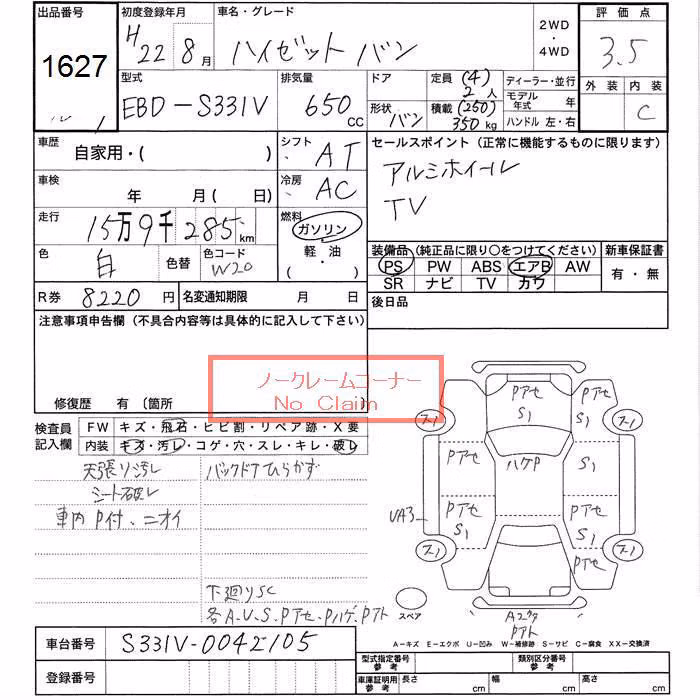 出品番号 初度登録年月 車名・グレード 2WD・4WD 評価点
1627 H22 8月 ハイゼットバン 3.5
外装 内装 C
型式 排気量 ドア 定員 (4) 2人 ディーラー・並行
EBD-S331V 650 CC 形状 バン 積載 (250) 350kg モデル年式 年
ハンドル 左・右
車歴 自家用・( ) シフト AT セールスポイント (正常に機能するものに限ります)
車検 年 月(日) 冷房 AC アルミホイール
TV
走行 15万9千285km 燃料 ガソリン 軽・油 ( ・ )
色 白 色替 色コード W20
装備品 (純正品に限り○をつけてください) 新車保証書
PS PW ABS エアB AW 有・無
SR ナビ TV カワ
R券 8220円 名変通知期限 月 日 後日品
注意事項申告欄 (不具合内容等は具体的に記入して下さい)
ノークレームコーナー
No Claim
修復歴 有 (箇所
検査員記入欄 FW キズ・飛石・ヒビ割・リペア跡・X要
内装 キズ・汚レ・コゲ・穴・スレ・キレ・破レ
天張リ汚レ バックドアひらかず
シート破レ
車内P付、ニオイ
下廻りSC
各A.U.S.Pアセ.Pハゲ.Pアト
PアセS1
PアセS1
ハゲP
Pアセ
S1
PアセS1
PアセS1
UA3
スペア
Pアト
A-キズ E-エクボ U-凹み W-補修跡 S-サビ C-腐食 XX-交換済
車台番号 S331V-0042105
登録番号
型式指定番号 参考 類別区分番号 参考
車庫証明用 参考 長さ cm 幅 cm 高さ cm